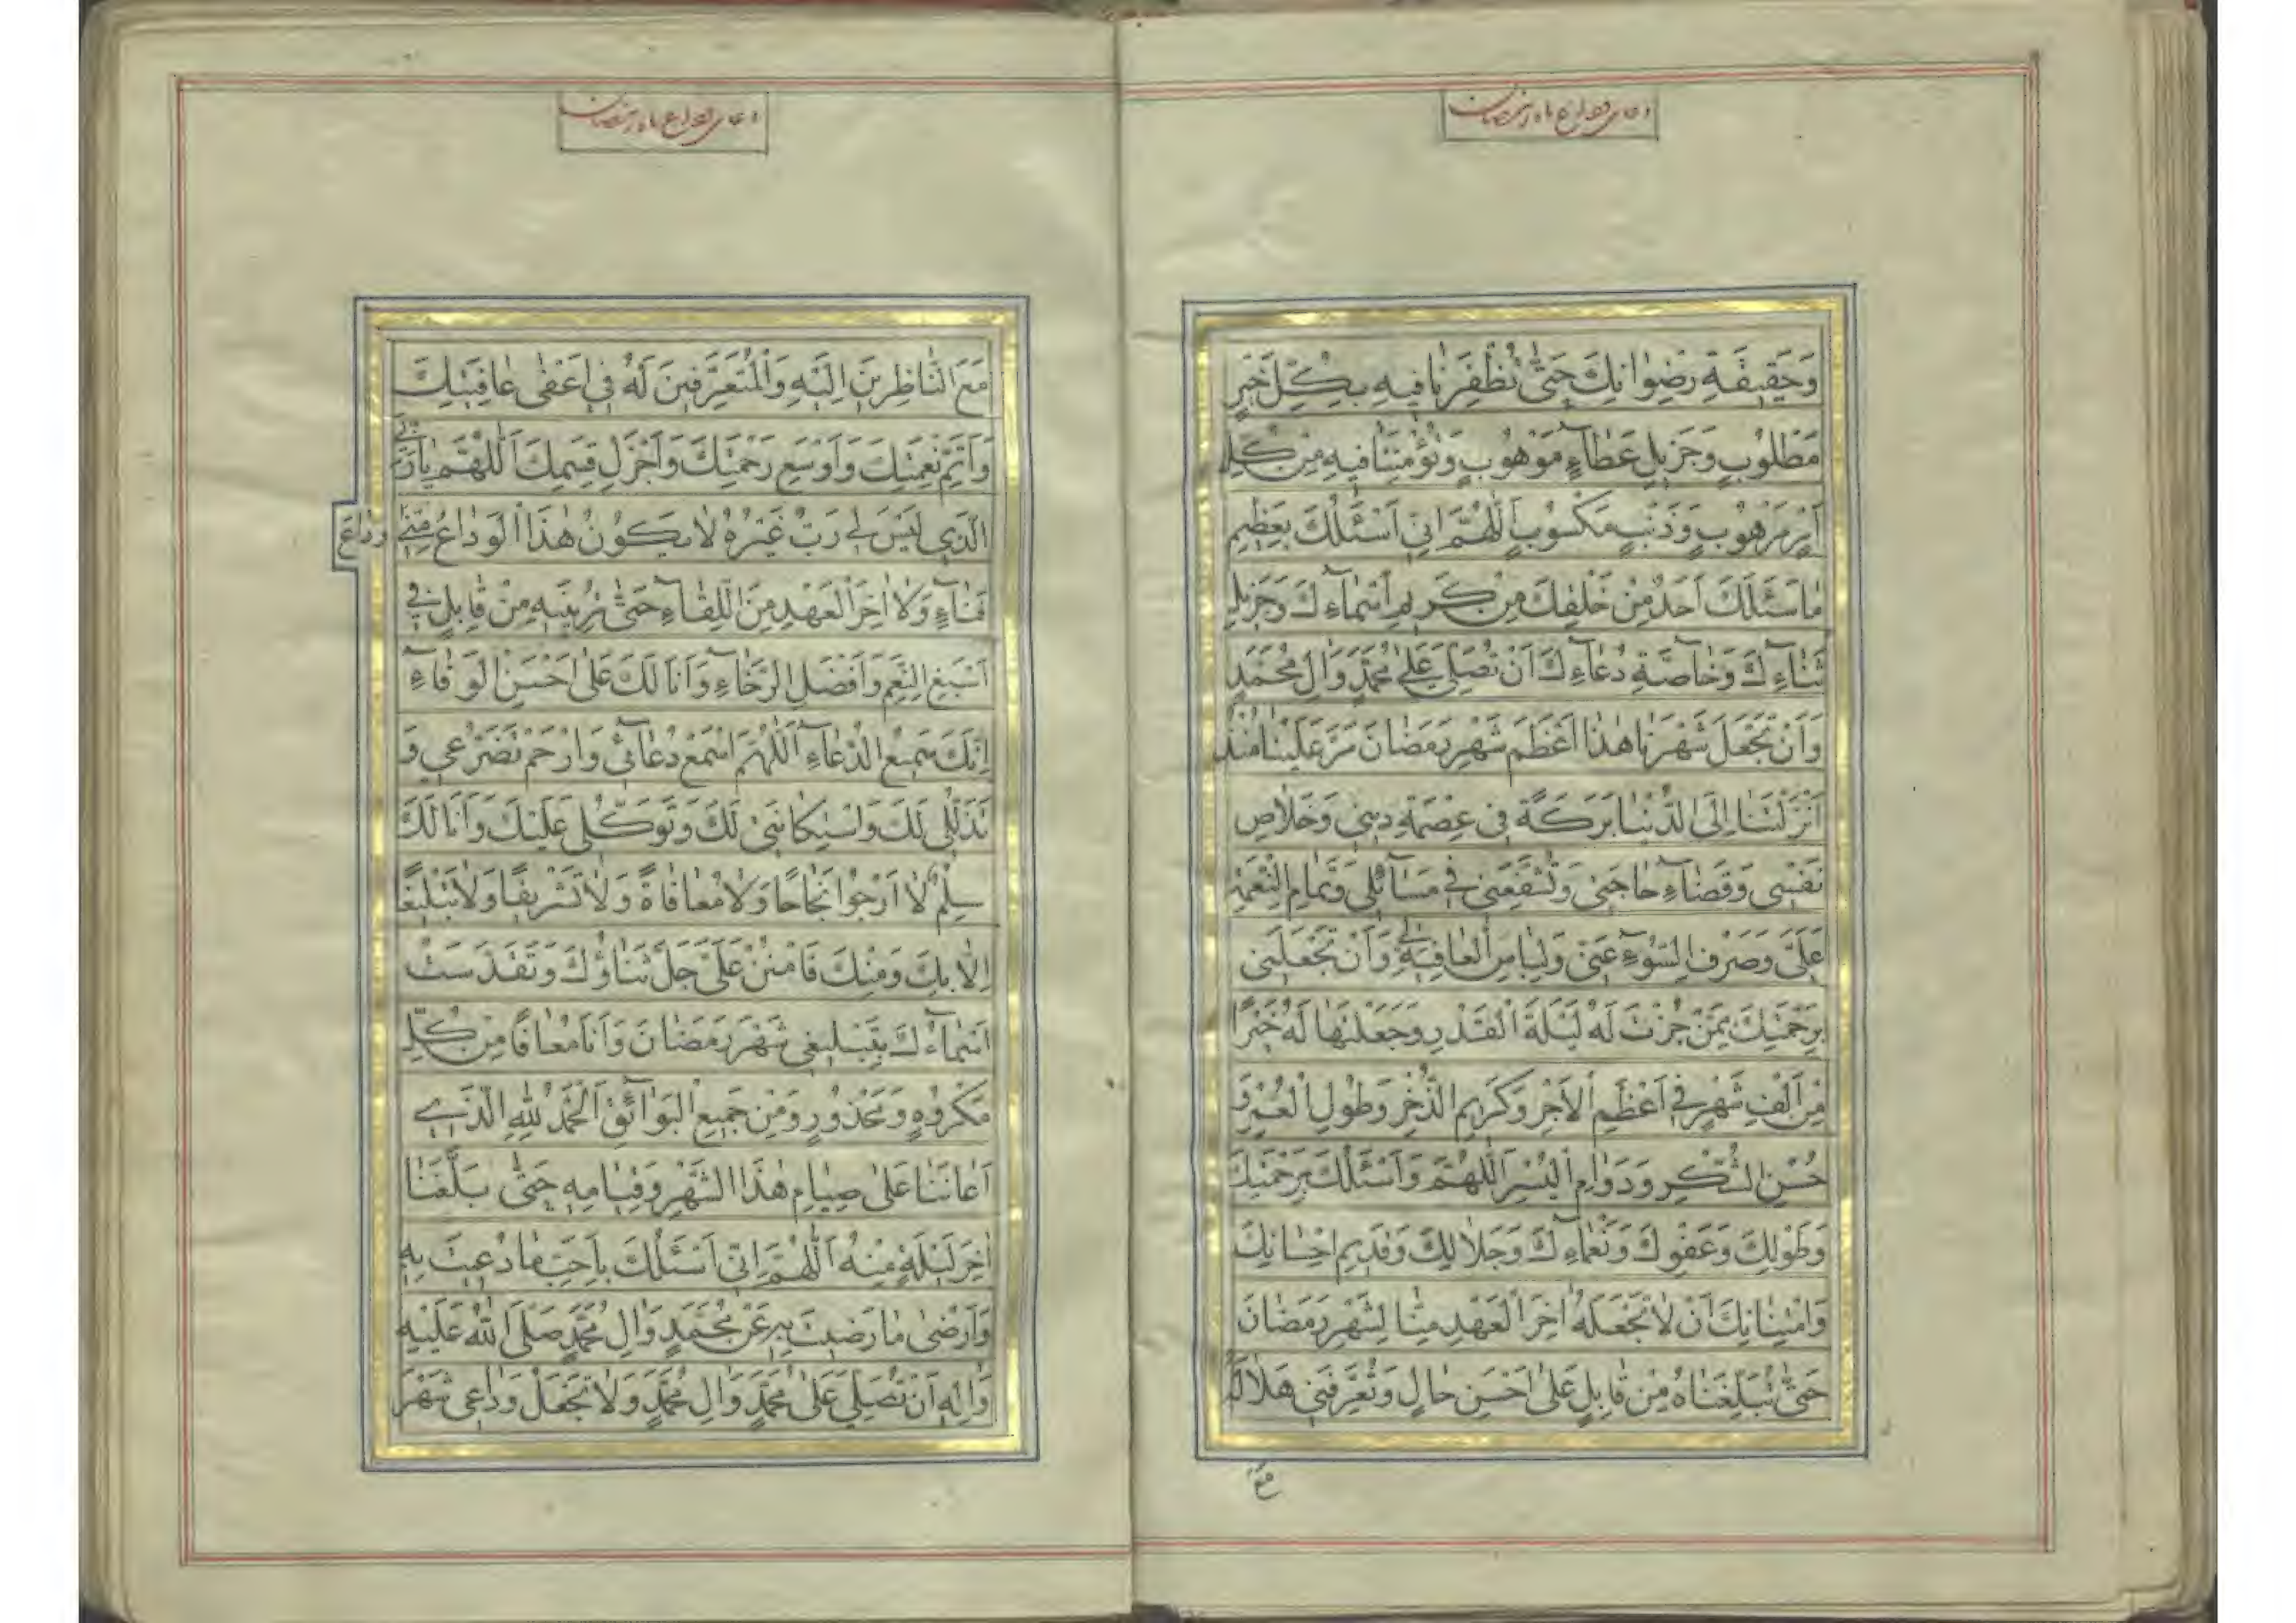 دعای وداع ماه رمضان
وَحَقِیقَةِ رِضْوٰانِكَ حَتّٰی تُظْفِرَنٰا فِیهِ بِكُلِّ خَیْرٍ
مَطْلُوبٍ وَجَزِیلِ عَطٰآءٍ مَوْهُوبٍ وَتُؤْمِنَنٰا فِیهِ مِنْ كُلِّ
اَمْرٍ مَرْهُوبٍ وَذَنْبٍ مَكْسُوبٍ اَللّٰهُمَّ اِنّی اَسْئَلُكَ بِعَظِیمِ
مٰا سَئَلَكَ اَحَدٌ مِنْ خَلْقِكَ مِنْ كَرِیمِ اَسْمٰآءِكَ وَجَزِیلِ
ثَنٰآءِكَ وَخٰآصَّةِ دُعٰآءِكَ اَنْ تُصَلِّیَ عَلیٰ مُحَمَّدٍ وَاٰلِ مُحَمَّدٍ
وَاَنْ تَجْعَلَ شَهْرَنٰا هٰذٰا اَعْظَمَ شَهْرِ رَمَضٰانَ مَرَّ عَلَیْنٰا مُنْذُ
اَنْزَلْتَنٰا اِلَی الدُّنْیٰا بَرَكَةً فی عِصْمَةِ دِینی وَخَلٰاصِ
نَفْسی وَقَضٰآءِ حٰاجَتی وَتُشَفِّعَنی فی مَسٰآئِلی وَتَمٰامِ النِّعْمَةِ
عَلَیَّ وَصَرْفِ السُّوٓءِ عَنّی وَلِبٰاسِ الْعٰافِیَةِ لی وَاَنْ تَجْعَلَنی
بِرَحْمَتِكَ مِمَّنْ حُزْتَ لَهُ لَیْلَةَ الْقَدْرِ وَجَعَلْتَهٰا لَهُ خَیْرًا
مِنْ اَلْفِ شَهْرٍ فی اَعْظَمِ الْاَجْرِ وَكَرِیمِ الذُّخْرِ وَطُولِ الْعُمْرِ وَ
حُسْنِ الشُّكْرِ وَدَوٰامِ الْیُسْرِ اَللّٰهُمَّ وَاَسْئَلُكَ بِرَحْمَتِكَ
وَطَوْلِكَ وَعَفْوِكَ وَنَعْمٰآءِكَ وَجَلٰالِكَ وَقَدِیمِ اِحْسٰانِكَ
وَامْتِنٰانِكَ اَنْ لٰا تَجْعَلَهُ اٰخِرَ الْعَهْدِ مِنّٰا لِشَهْرِ رَمَضٰانَ
حَتّٰی تُبَلِّغَنٰاهُ مِنْ قٰابِلٍ عَلیٰ اَحْسَنِ حٰالٍ وَتُعَرِّفَنی هِلٰالَهُ
مَعَ
دعای وداع ماه رمضان
مَعَ النّٰاظِرِینَ اِلَیْهِ وَالْمُتَعَرِّفِینَ لَهُ فی اَعْفیٰ عٰافِیَتِكَ
وَاَتَمِّ نِعْمَتِكَ وَاَوْسَعِ رَحْمَتِكَ وَاَجْزَلِ قِسَمِكَ اَللّٰهُمَّ یٰا رَبِّیَ
الَّذی لَیْسَ لی رَبٌّ غَیْرُهُ لٰا یَكُونُ هٰذَا الْوَدٰاعُ مِنّی وِدٰاعَ
فَنٰآءٍ وَلٰا اٰخِرَ الْعَهْدِ مِنَ اللِّقٰآءِ حَتّٰی تُرِیَنیهِ مِنْ قٰابِلٍ فی
اَسْبَغِ النِّعَمِ وَاَفْضَلِ الرَّخٰآءِ وَاَنَا لَكَ عَلیٰ اَحْسَنِ الْوَفٰآءِ
اِنَّكَ سَمِیعُ الدُّعٰآءِ اَللّٰهُمَّ اسْمَعْ دُعٰآئی وَارْحَمْ تَضَرُّعی وَ
تَذَلُّلی لَكَ وَاسْتِكٰانَتی لَكَ وَتَوَكُّلی عَلَیْكَ وَاَنَا لَكَ
سِلْمٌ لٰا اَرْجُوا نَجٰاحًا وَلٰا مُعٰافٰاةً وَلٰا تَشْرِیفًا وَلٰا تَبْلِیغًا
اِلّٰا بِكَ وَمِنْكَ فَامْنُنْ عَلَیَّ جَلَّ ثَنٰاؤُكَ وَتَقَدَّسَتْ
اَسْمٰآءُكَ بِتَبْلِیغی شَهْرَ رَمَضٰانَ وَاَنَا مُعٰافًا مِنْ كُلِّ
مَكْرُوهٍ وَمَحْذُورٍ وَمِنْ جَمِیعِ الْبَوٰآئِقِ اَلْحَمْدُ لِلّٰهِ الَّذی
اَعٰانَنٰا عَلیٰ صِیٰامِ هٰذَا الشَّهْرِ وَقِیٰامِهِ حَتّٰی بَلَّغَنٰا
اٰخِرَ لَیْلَةٍ مِنْهُ اَللّٰهُمَّ اِنّی اَسْئَلُكَ بِاَحَبِّ مٰا دُعِیتَ بِهِ
وَاَرْضیٰ مٰا رَضِیتَ بِهِ عَنْ مُحَمَّدٍ وَاٰلِ مُحَمَّدٍ صَلَّی اللّٰهُ عَلَیْهِ
وَاٰلِهِ اَنْ تُصَلِّیَ عَلیٰ مُحَمَّدٍ وَاٰلِ مُحَمَّدٍ وَلٰا تَجْعَلْ وَدٰاعی شَهْرَ